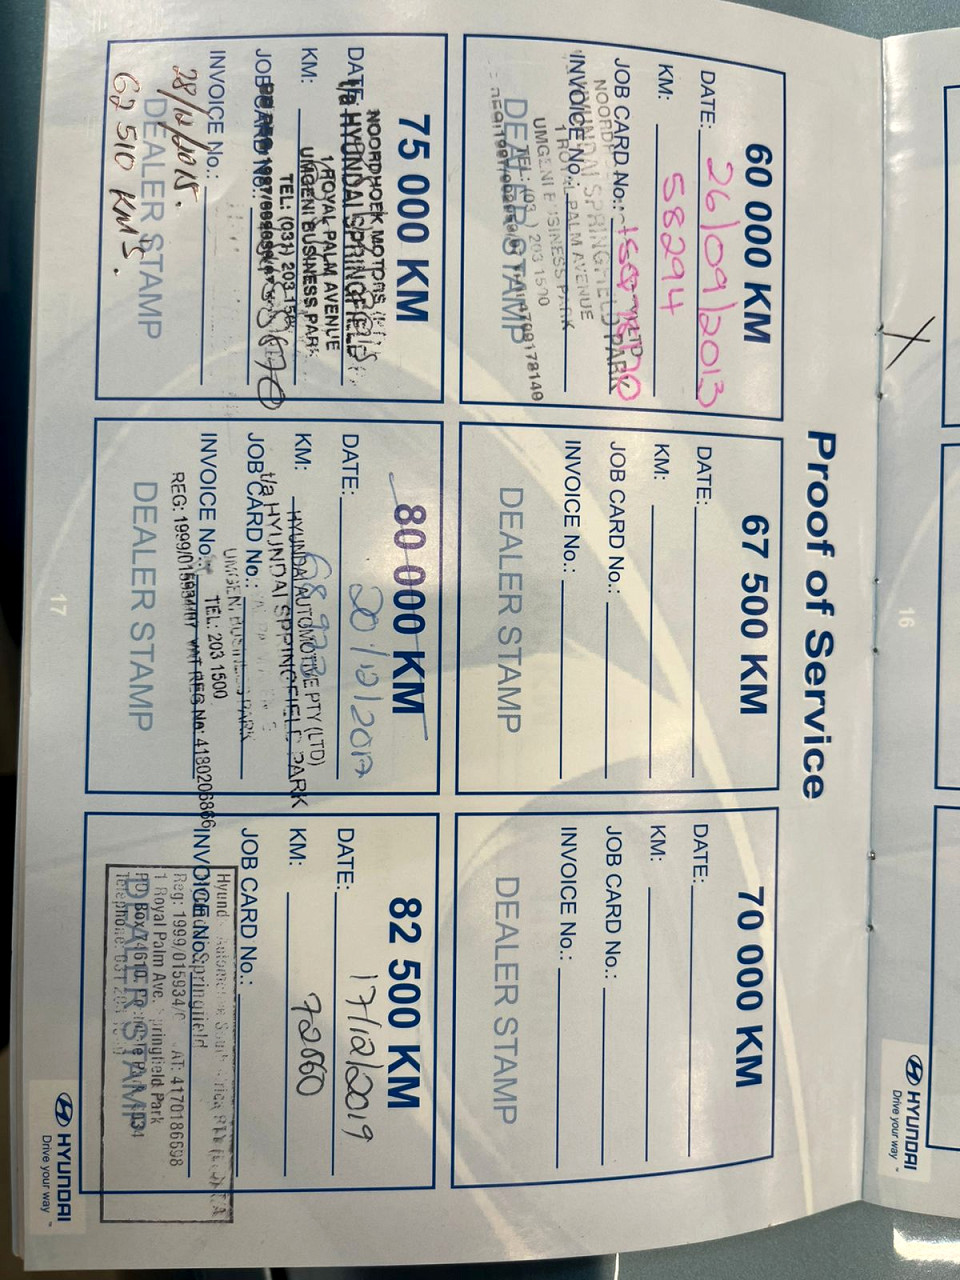 Proof of Service
60 000 KM
DATE: 26/09/2013
KM: 58294
JOB CARD No.:
INVOICE No.:
NOORDHOEK
HYUNDAI SPRINGFIELD PARK
1 ROYAL PALM AVENUE
UMGENI BUSINESS PARK
TEL: (031) 203 1500
DEALER STAMP
67 500 KM
DATE:
KM:
JOB CARD No.:
INVOICE No.:
DEALER STAMP
70 000 KM
DATE:
KM:
JOB CARD No.:
INVOICE No.:
DEALER STAMP
75 000 KM
DATE:
KM:
JOB CARD No.:
INVOICE No.:
NOORDHOEK MOTORS
t/a HYUNDAI SPRINGFIELD
1 ROYAL PALM AVENUE
UMGENI BUSINESS PARK
TEL: (031) 203 150
28/12/2015.
DEALER STAMP
62 510 KMS.
80 000 KM
DATE: 20/12/2017
KM:
HYUNDAI AUTOMOTIVE PTY (LTD)
t/a HYUNDAI SPRINGFIELD PARK
JOB CARD No.:
UMGENI BUSINESS PARK
INVOICE No.:
TEL: 203 1500
REG: 1999/015934/07 VAT REG No: 4180206866
DEALER STAMP
82 500 KM
DATE: 17/12/2019
KM: 72860
JOB CARD No.:
INVOICE No.:
Springfield
Reg: 1999/015934/ VAT: 4170186698
1 Royal Palm Ave. Springfield Park
DEALER STAMP
16
17
HYUNDAI
Drive your way™
HYUNDAI
Drive your way™